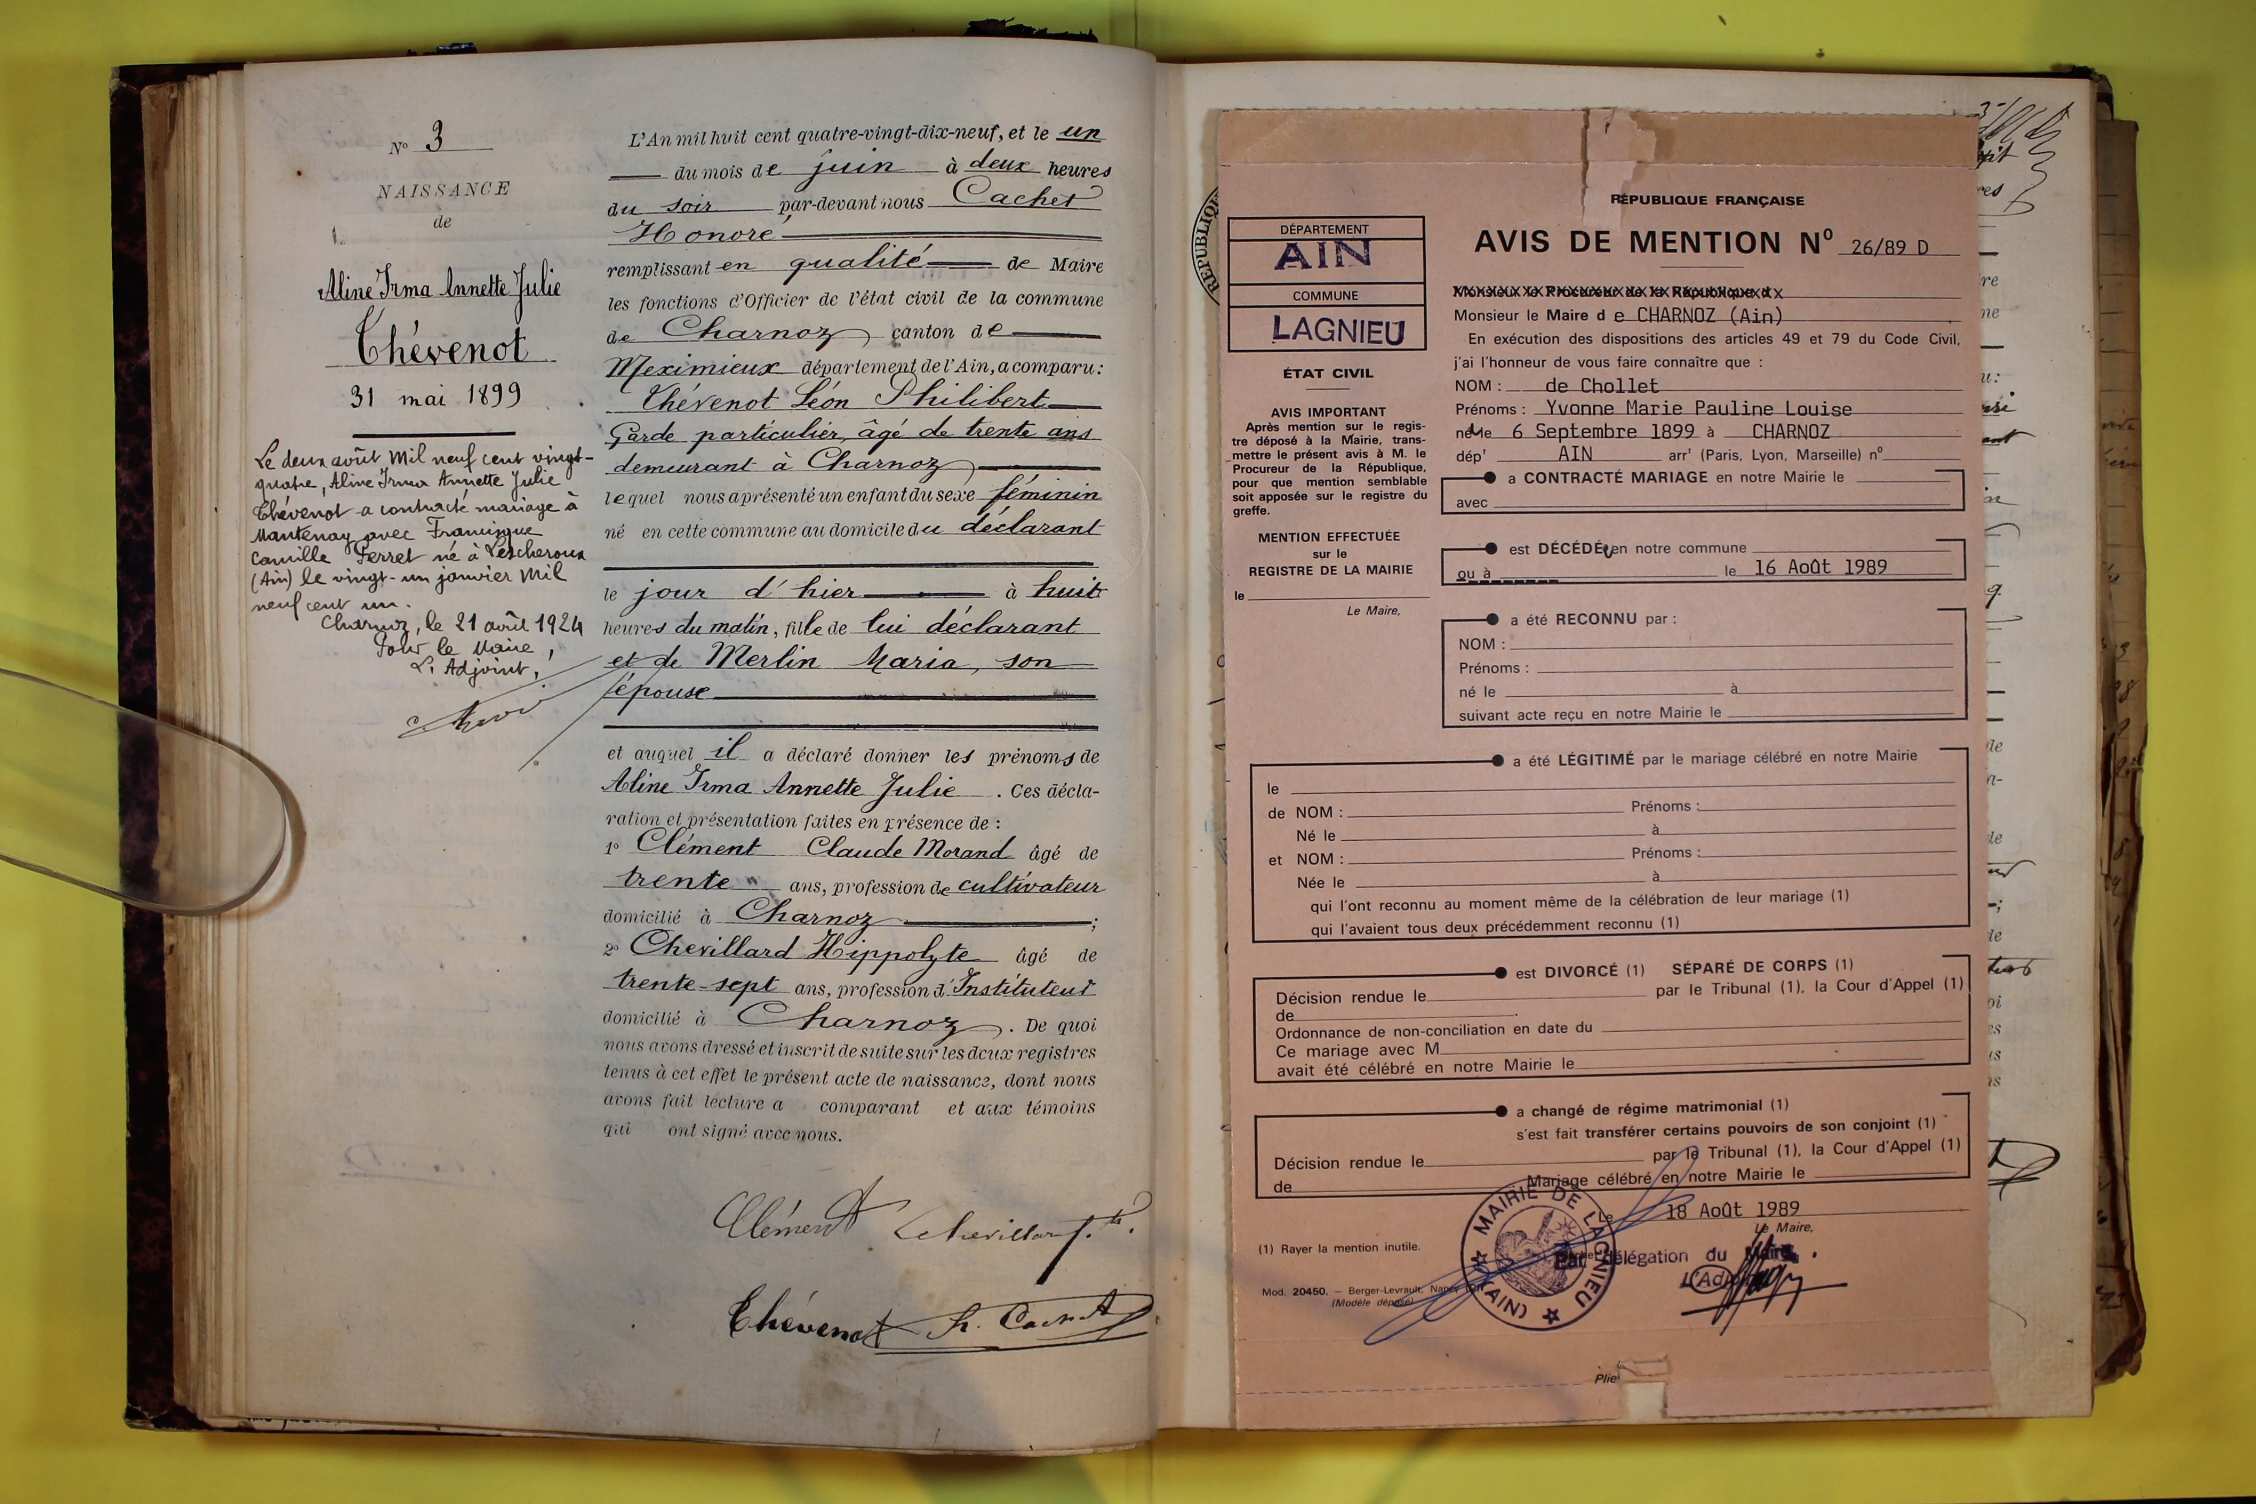 N° 3
NAISSANCE
de
Aline Irma Annette Julie
Thévenot
31 mai 1899
Le deux août Mil neuf cent vingt-
quatre, Aline Irma Annette Julie
Thévenot a contracté mariage à
Mantenay avec Francisque
Camille Perret né à Lescheroux
(Ain) le vingt-un janvier Mil
neuf cent un.
Charnoz, le 21 août 1924
Pour le Maire,
L'Adjoint,
L'An mil huit cent quatre-vingt-dix-neuf, et le un
du mois de juin à deux heures
du soir par-devant nous Cachet
Honoré
remplissant en qualité de Maire
les fonctions d'Officier de l'état civil de la commune
de Charnoz canton de
Meximieux département de l'Ain, a comparu :
Thévenot Léon Philibert
Garde particulier, âgé de trente ans
demeurant à Charnoz
lequel nous a présenté un enfant du sexe féminin
né en cette commune au domicile du déclarant
le jour d'hier à huit
heures du matin, fille de lui déclarant
et de Merlin Maria, son
épouse
et auquel il a déclaré donner les prénoms de
Aline Irma Annette Julie. Ces décla-
ration et présentation faites en présence de :
1° Clément Claude Morand âgé de
trente ans, profession de cultivateur
domicilié à Charnoz ;
2° Chevillard Hippolyte âgé de
trente-sept ans, profession d'Instituteur
domicilié à Charnoz. De quoi
nous avons dressé et inscrit de suite sur les deux registres
tenus à cet effet le présent acte de naissance, dont nous
avons fait lecture a comparant et aux témoins
qui ont signé avec nous.
Clément Chevillard
Thévenot H. Cachet
RÉPUBLIQUE FRANÇAISE
AVIS DE MENTION N° 26/89 D
DÉPARTEMENT
AIN
COMMUNE
LAGNIEU
ÉTAT CIVIL
AVIS IMPORTANT
Après mention sur le regis-
tre déposé à la Mairie, trans-
mettre le présent avis à M. le
Procureur de la République,
pour que mention semblable
soit apposée sur le registre du
greffe.
MENTION EFFECTUÉE
sur le
REGISTRE DE LA MAIRIE
le
Le Maire,
Monsieur le Procureur de la République d
Monsieur le Maire d e CHARNOZ (Ain)
En exécution des dispositions des articles 49 et 79 du Code Civil,
j'ai l'honneur de vous faire connaître que :
NOM : de Chollet
Prénoms : Yvonne Marie Pauline Louise
née le 6 Septembre 1899 à CHARNOZ
dép' AIN arr' (Paris, Lyon, Marseille) n°
a CONTRACTÉ MARIAGE en notre Mairie le
avec
est DÉCÉDÉe en notre commune
ou à le 16 Août 1989
a été RECONNU par :
NOM :
Prénoms :
né le à
suivant acte reçu en notre Mairie le
a été LÉGITIMÉ par le mariage célébré en notre Mairie
le
de NOM : Prénoms :
Né le à
et NOM : Prénoms :
Née le à
qui l'ont reconnu au moment même de la célébration de leur mariage (1)
qui l'avaient tous deux précédemment reconnu (1)
est DIVORCÉ (1) SÉPARÉ DE CORPS (1)
Décision rendue le par le Tribunal (1), la Cour d'Appel (1)
de
Ordonnance de non-conciliation en date du
Ce mariage avec M
avait été célébré en notre Mairie le
a changé de régime matrimonial (1)
s'est fait transférer certains pouvoirs de son conjoint (1)
Décision rendue le par le Tribunal (1), la Cour d'Appel (1)
de Mariage célébré en notre Mairie le
Le 18 Août 1989
Le Maire,
Par délégation du Maire
L'Adjoint
MAIRIE DE LAGNIEU
(AIN)
(1) Rayer la mention inutile.
Mod. 20450. — Berger-Levrault, Nancy
(Modèle déposé)
Plie